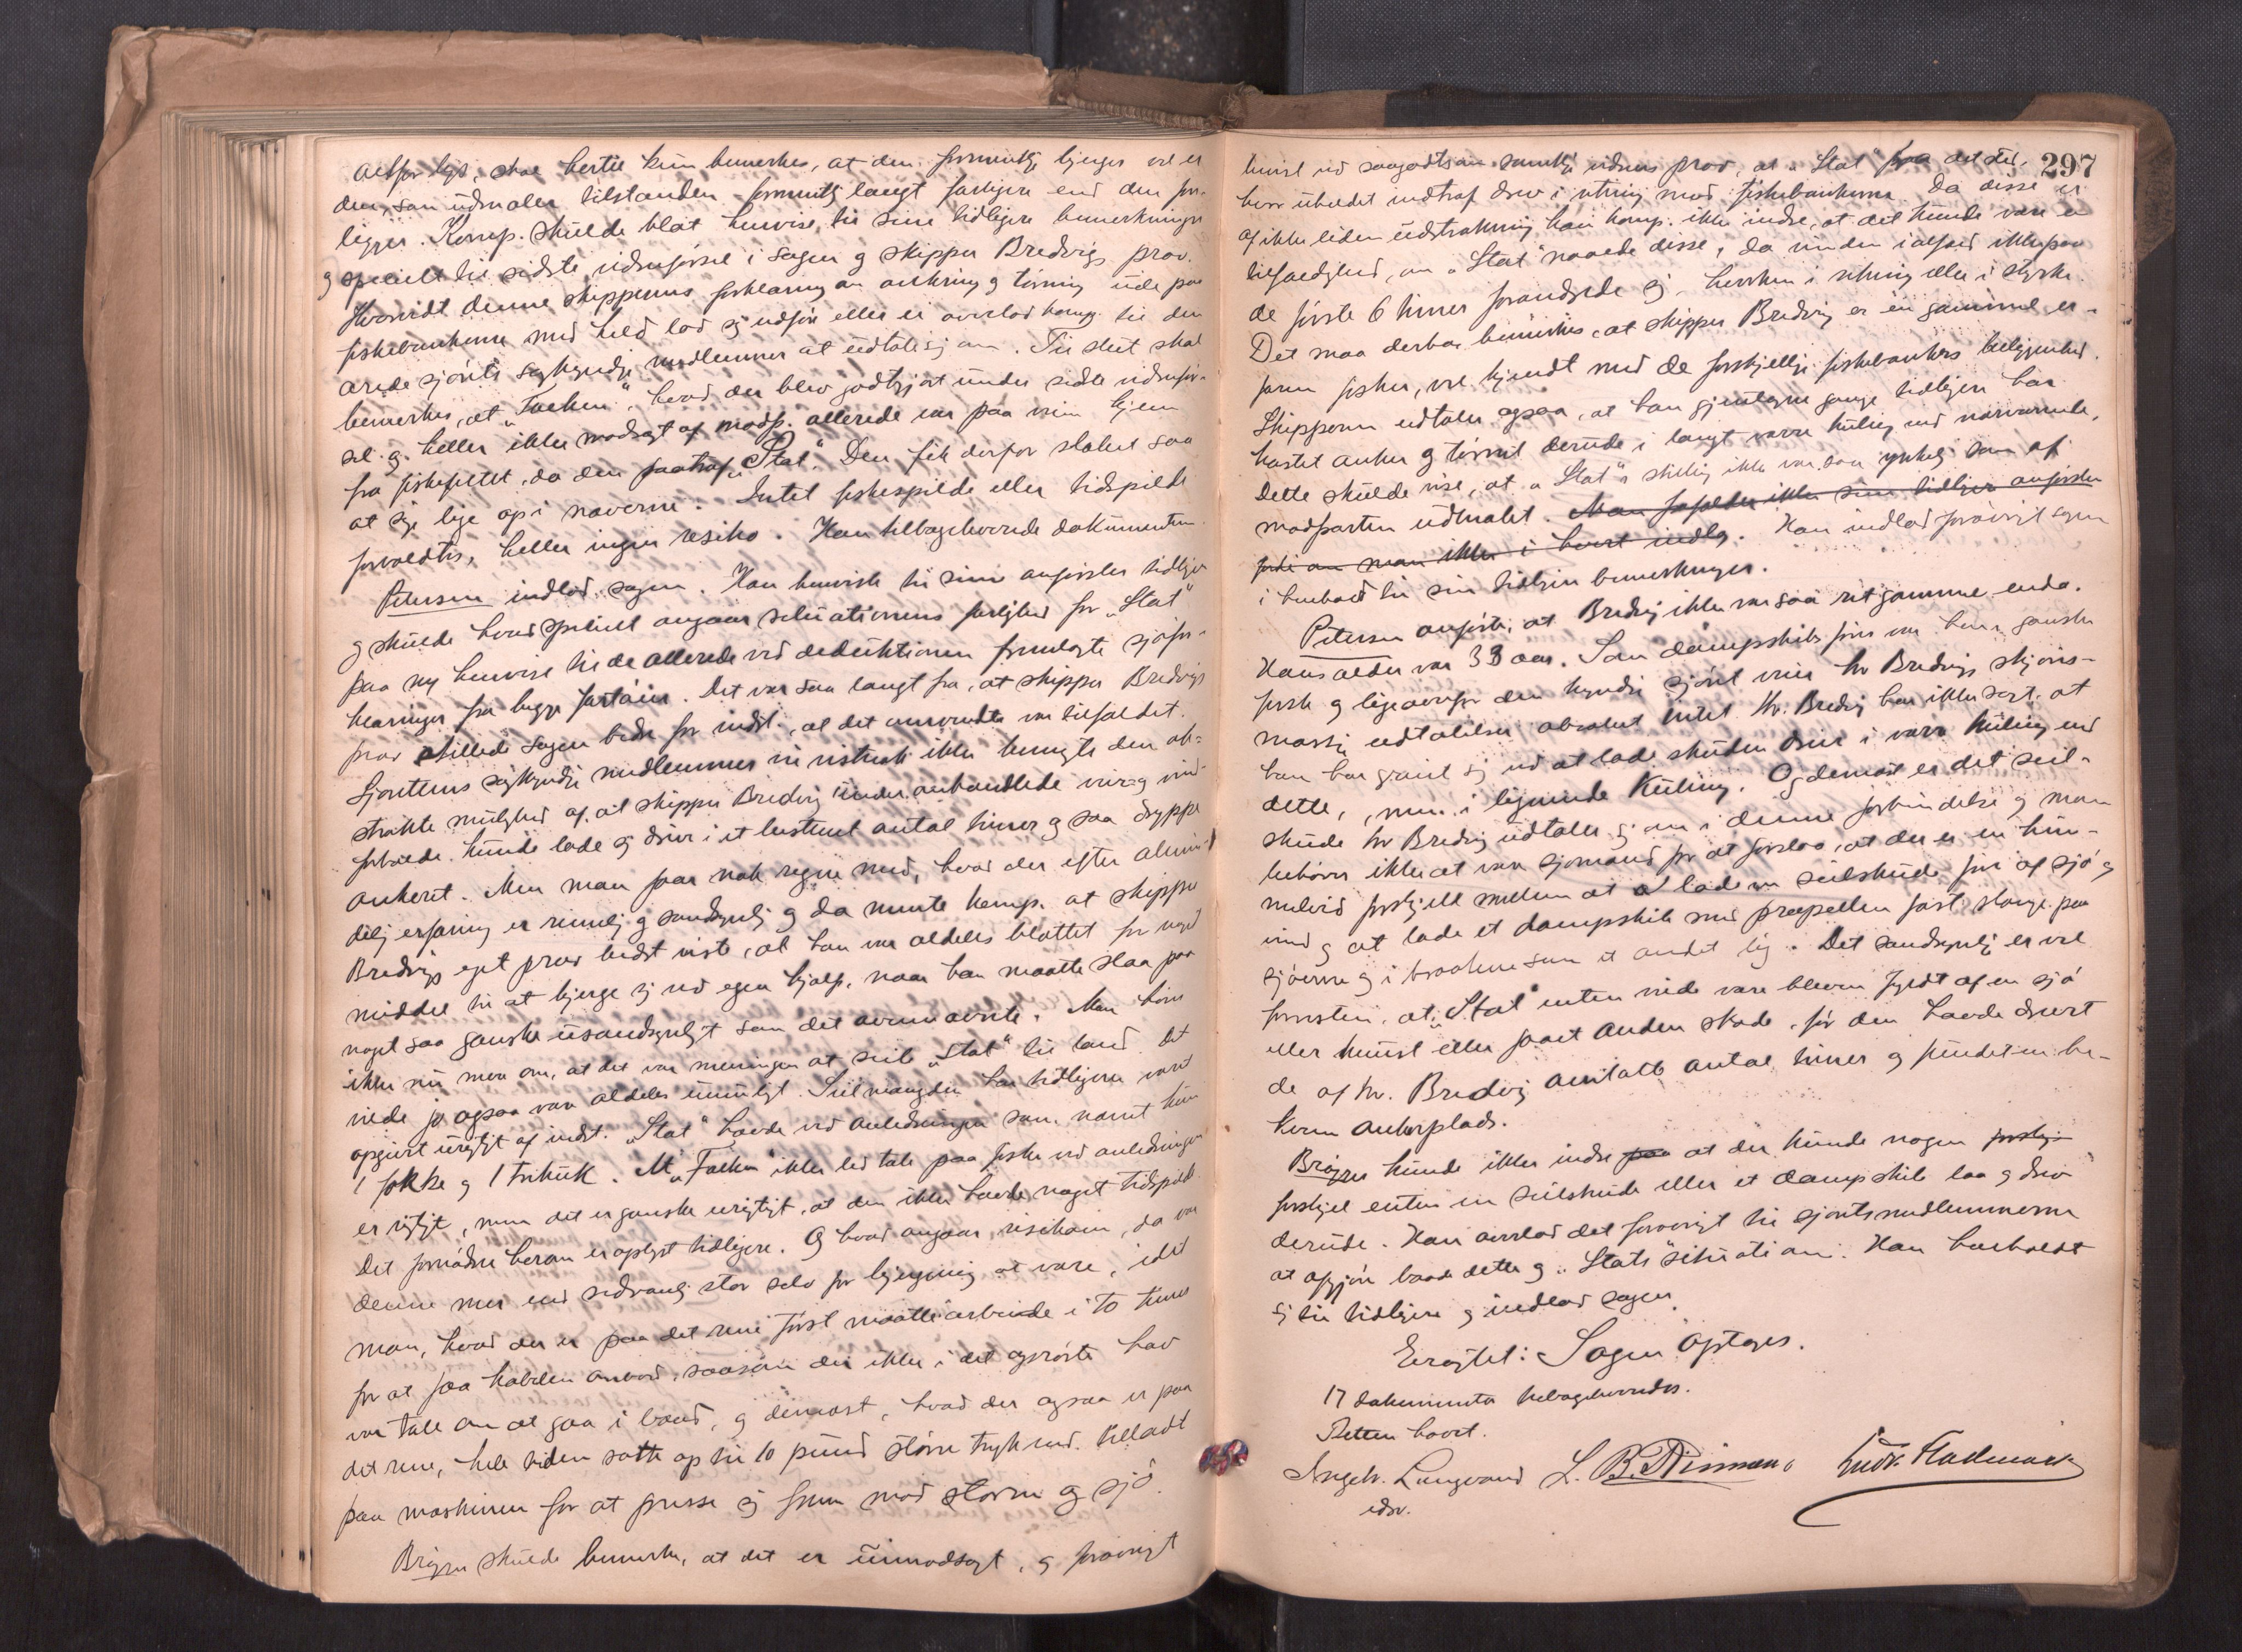 altfor lys, skal hertil kun bemerkes, at den formentlig bjerger vel er
den, som udmaler tilstanden formentlig langt farligere end den fore-
ligger. Komp. skulde blot henvise til sine tidligere bemerkninger
og specielt til sidste vidneførsel i sagen og skipper Bredvigs prov.
Hvorvidt denne skipperens forklaring om ankring og tørning ude paa
fiskebankerne med held lod sig udføre eller ei overlod komp. til den
ærede sjørets sagkyndige medlemmer at udtale sig om. Til slut skal
bemerkes, at "Falken", hvad der blev godtgjort under sidste vidneför-
sel og heller ikke modsagt af modp. allerede var paa vei hjem
fra fiskefeltet, da den paatraf "Stat". Den fik derfor slabet saa
at sige lige op i næverne. Intet fiskespilde eller tidspilde
forvoldtes, heller ingen risiko. Han tilbageleverede dokumenterne.
Petersen indlod sagen. Han henviste til sine anførsler tidligere
og skulde hvad specielt angaar situationens farlighed for "Stat"
paa ny henvise til de allerede ved deduktionen fremlagte sjøfor-
klaringer fra begge fartøier. Det var saa langt fra, at skipper Bredvigs
prov stillede sagen bedre for indst., at det omvendte var tilfældet.
Sjørettens sagkyndige medlemmer vil vistnok ikke benegte den ab-
strakte mulighed af, at skipper Bredvig under omhandlede veir og vind-
forholde kunde lade sig drive i et bestemt antal timer og saa droppe
ankeret. Men man faar nok regne med, hvad der efter almin-
delig erfaring er rimelig og sandsynlig og da mente komp. at skipper
Bredvigs eget prov bedst viste, at han var aldeles blottet for noget
middel til at bjerge sig ved egen hjælp, naar han maatte slaa paa
noget saa ganske usandsynligt som det ovennævnte. Man hører
ikke nu mere om, at det var meningen at seile "Stat" til land. Det
vilde jo ogsaa være aldeles umuligt. Seilmængden har tidligere vært
opgivet urigtigt af indst. "Stat" havde ved anledningen som nævnt kun
1 fokke og 1 trikuk. At "Falken" ikke led tab paa fiske ved anledningen
er rigtigt, men det er ganske urigtigt, at den ikke havde noget tidspild.
Det fornødne herom er oplyst tidligere. Og hvad angaar risikoen, da var
denne mer end sedvanlig stor selv for bjergning at være, idet
man, hvad der er paa det rene først maatte arbeide i to timer
for at faa kablen ombord, saasom der ikke i det oprørte hav
var tale om at gaa i baad, og dernæst, hvad der ogsaa er paa
det rene, hele tiden satte op til 10 pund større tryk end tilladt
paa maskinen for at presse sig frem mod storm og sjø.
Brögger skulde bemerke, at det er uimodsagt, og forøvrigt
297
bevist ved saagodtsom samtlige vidners prov, at "Stat" paa det sted,
hvor uheldet indtraf drev i retning mod fiskebankerne. Da disse er
af ikke liden udstrækning kan komp. ikke indse, at det kunde være en
tilfældighed, om "Stat" naaede disse, da vinden ialfald ikke paa
de første 6 timer forandrede sig hverken i retning eller i styrke.
Det maa derhos bemerkes, at skipper Bredvig er en gammel er-
faren fisker, vel kjendt med de forskjellige fiskebankers beliggenhed.
Skipperen udtaler ogsaa, at han gjentagne gange tidligere har
kastet anker og tørnet derude i langt værre kuling end nærværende.
Dette skulde vise, at "Stat"s stilling ikke var saa ynkelig som af
modparten udmalet. Man frafalder ikke sine tidligere anførsler
fordi om man ikke i hvert indlæg. Han indlod forøvrigt sagen
i henhold til sin tidligere bemerkninger.
Petersen anførte, at Bredvig ikke var saa ret gammel enda.
Hans alder var 33 aar. Som dampskibs fører var han ganske
fersk og ligeoverfor den kyndige sjøret veier hr Bredvigs skjøns-
mæssige udtalelser absolut intet. Hr. Bredvig har ikke sagt, at
han har greiet sig ved at lade skuden drive i værre kuling end
dette, men i lignende kuling. Og dernæst er det seil-
skude hr Bredvig udtaler sig om i denne forbindelse og man
behøver ikke at være sjømand for at forstaa, at der er en him-
melvid forskjell mellem at lade en seilskude fare af sjø og
vind og at lade et dampskib med propellen fast slænge paa
sjøerne og i braatene som et andet lig. Det sandsynlige er vel
forresten, at "Stat" enten vilde være bleven fyldt af en sjø
eller knust eller faaet anden skade, før den havde drevet
de af hr. Bredvig antalte antal timer og fundet en be-
kvem ankerplads.
Brögger kunde ikke indse paa at der kunde nogen forskjo-
forskjel enten en seilskude eller et dampskib laa og drev
derude. Han overlod det forøvrigt til sjøretsmedlemmerne
at afgjøre baade dette og "Stats" situation. Han henholdt
sig til tidligere og indlod sagen.
Eragtet: Sagen optages.
17 dokumenter tilbageleveredes.
Retten hævet.
Ingebr. Langvand L. B. Nismen Gudv. Hallmark
edsv.